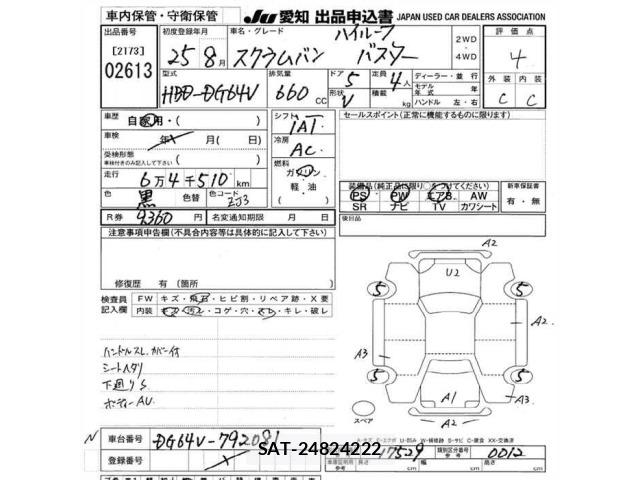 車内保管・守衛保管 JU 愛知 出品申込書 JAPAN USED CAR DEALERS ASSOCIATION
[2173]
02613
初度登録年月 車名・グレード 2WD・4WD 評価点
25年 8月 スクラムバン ハイルーフ バスター 4
型式 排気量 ドア 定員 ディーラー・並行 外装 内装
HBD-DG64V 660 CC 5 4人 C C
形状 V 積載 kg モデル年式 ハンドル 左・右
車歴 自家用・( ) シフト IAT セールスポイント(正常に機能するものに限ります)
車検 年 月(日) 冷房 AC
受検形態 車検付きのみ記入して下さい 燃料 ガソリン 軽・油 ( )
走行 6万4千510km
色 黒 色替 色コード ZJ3
装備品(純正品に限り○をつけてください) 新車保証書
PS PW エアB AW 有・無
SR ナビ TV カワシート
R券 9360円 名変通知期限 月 日 後日品
注意事項申告欄(不具合内容等は具体的に記入して下さい)
修復歴 有 (箇所
検査員記入欄 FW キズ・飛石・ヒビ割・リペア跡・X要
内装 キズ・汚レ・コゲ・穴・スレ・キレ・破レ
ハンドルスレ、カバー付
シートヘタリ
下廻りS
ボディーAU
A2
U2
5 5
A2
A3
5 5
A1 A3
スペア A2
N 車台番号 DG64V-792081
登録番号
SAT-24824222
17529 類別区分番号 0012
車庫証明参考 長さ cm 幅 cm 高さ cm